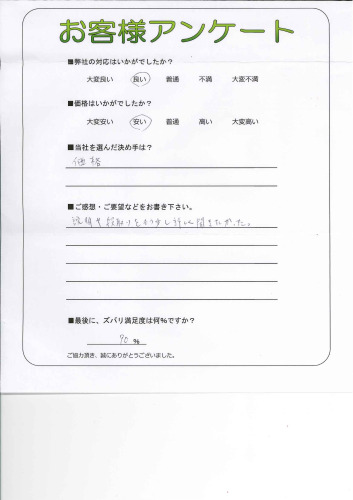 お客様アンケート
■弊社の対応はいかがでしたか？
大変良い 良い 普通 不満 大変不満
■価格はいかがでしたか？
大変安い 安い 普通 高い 大変高い
■当社を選んだ決め手は？
価格
■ご感想・ご要望などをお書き下さい。
説明や段取りをもう少し詳しく聞きたかった。
■最後に、ズバリ満足度は何%ですか？
70 %
ご協力頂き、誠にありがとうございました。